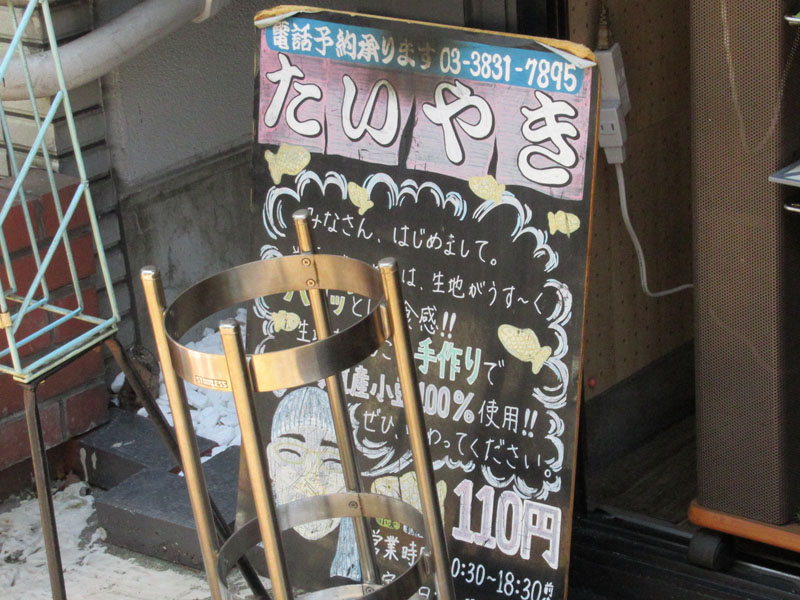 電話予約承ります 03-3831-7895
たいやき
みなさん、はじめまして。
は、生地がうす〜く
パ ッと 食感!!
生 手作りで
産小 100%使用!!
ぜひ、 わってください。
110円
営業時
0:30~18:30
STAINLESS